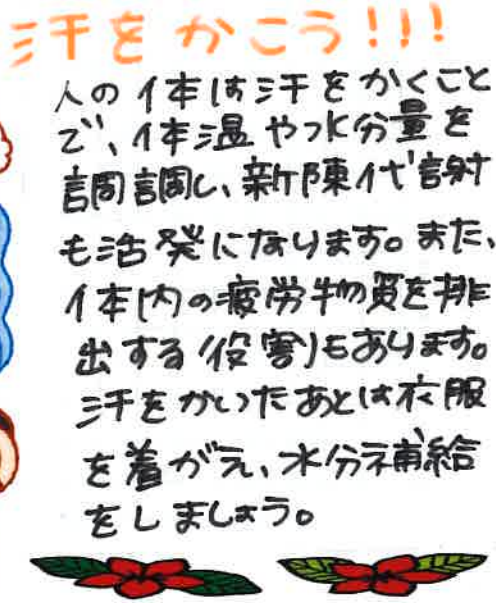 汗をかこう!!!
人の体は汗をかくこと
で、体温や水分量を
調調し、新陳代謝
も活発になります。また、
体内の疲労物質を排
出する役割もあります。
汗をかいたあとは衣服
を着がえ、水分補給
をしましょう。